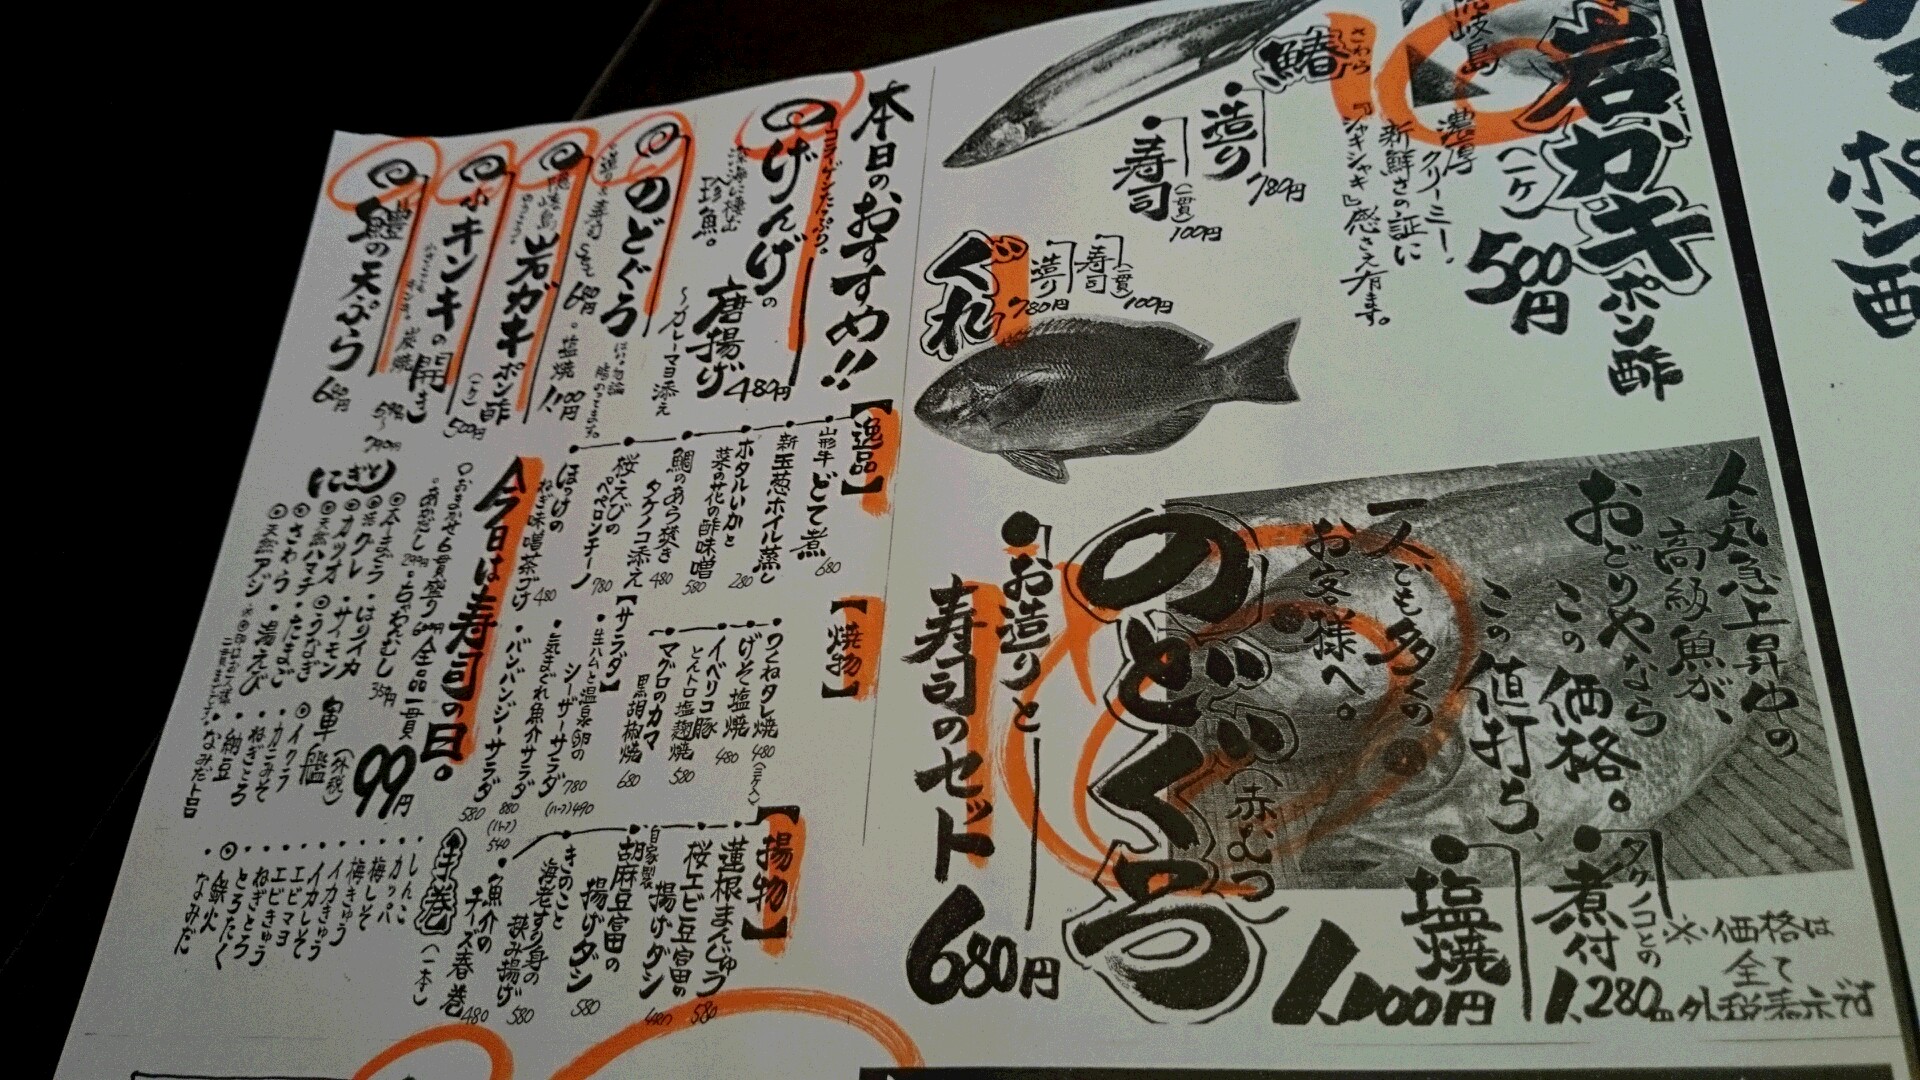 岩ガキ
ポン酢
(一ケ)
500円
濃厚
クリーミー!
新鮮さの証に
『シャキシャキ』感さえ有ます。
さわら
鰆
造り
780円
寿司
(一貫)
100円
ぐれ
造り
780円
寿司
(一貫)
100円
人気急上昇中の
高級魚が、
おどりやなら
この価格。
この値打ち、
一人でも多くの
お客様へ。
のどぐろ
(赤むつ)
お造りと
寿司のセット
680円
塩焼
1,100円
タケノコとの
煮付
1,280円
※価格は
全て
外税表示です
ポン酢
本日のおすすめ!!
コラーゲンたっぷり。
げんげの
唐揚げ
480円
深海に棲む
珍魚。
〜カレーマヨ添え
のどぐろ
造り&寿司
680円
塩焼
1,100円
隠岐島
岩ガキポン酢
(一ケ)
500円
小キンキの開き
炭焼
鱧の天ぷら
680円
【逸品】
山形牛どて煮
680
新玉葱ホイル蒸し
ホタルいかと
菜の花の酢味噌
580
鯛のあら焚き
タケノコ添え
480
桜えびの
ペペロンチーノ
780
ほっけの
ねぎ味噌茶づけ
480
【焼物】
つくねタレ焼
480
げそ塩焼
480
イベリコ豚
とんトロ塩麹焼
580
マグロのカマ
黒胡椒焼
680
【サラダ】
生ハムと温泉卵の
シーザーサラダ
780
(ハーフ)490
気まぐれ魚介サラダ
880
(ハーフ)540
バンバンジーサラダ
580
【揚物】
蓮根まんじゅう
580
桜エビ豆富の
揚げダシ
480
自家製
胡麻豆富の
揚げダシ
580
きのこと
海老すり身の
挟み揚げ
580
魚介の
チーズ春巻
480
今日は寿司の日。
全品一貫
99円
(外税)
おまかせ6貫盛り
ちゃわんむし
350円
にぎり
本まぐろ
はりイカ
サーモン
カツオ
うなぎ
天然ハマチ
たまご
さわら
湯えび
天然アジ
軍艦
イクラ
カニみそ
ねぎとろ
納豆
なみだトロ
手巻
(一本)
しんこ
カッパ
梅しそ
梅きゅう
イカきゅう
イカしそ
エビマヨ
エビきゅう
ねぎとろ
とろたく
鉄火
なみだ